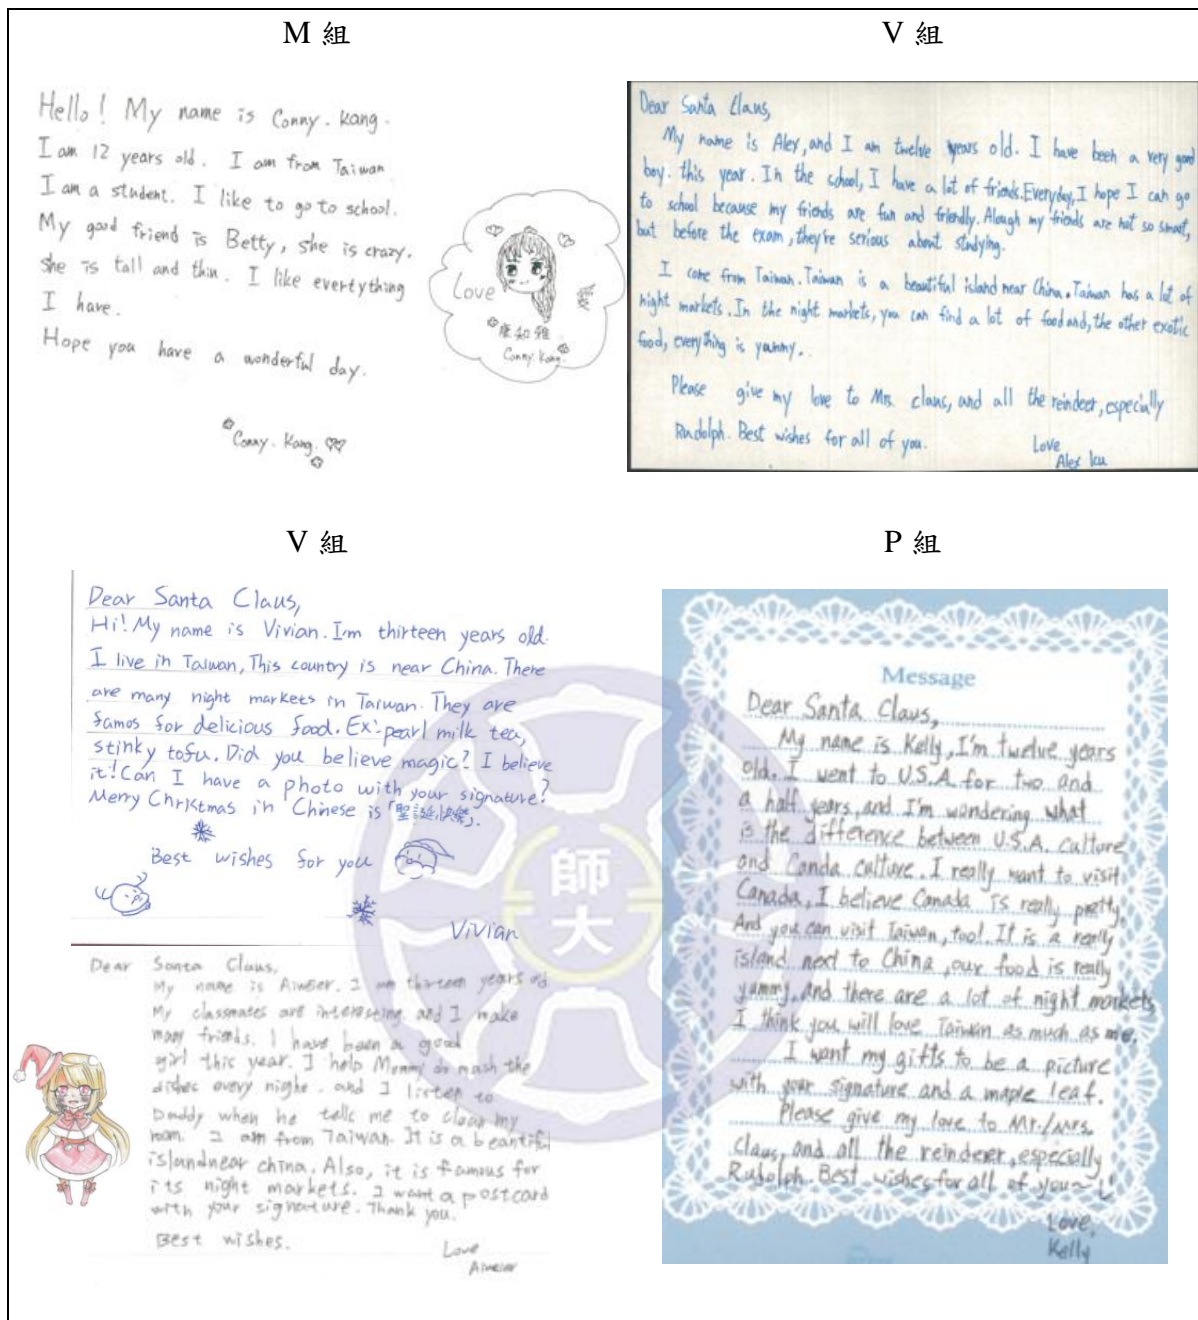 M 組
Hello! My name is Conny. Kang.
I am 12 years old. I am from Taiwan
I am a student. I like to go to school.
My good friend is Betty, she is crazy.
she is tall and thin. I like evertything
I have.
Hope you have a wonderful day.
Conny. Kang.
Love
康知雅
Conny. Kang.
V 組
Dear Santa Claus,
My name is Alex, and I am twelve years old. I have been a very good
boy. this year. In the school, I have a lot of friends. Everyday, I hope I can go
to school because my friends are fun and friendly. Alough my friends are not so smart,
but before the exam, they're serious about studying.
I come from Taiwan. Taiwan is a beautiful island near China. Taiwan has a lot of
night markets. In the night markets, you can find a lot of food and, the other exotic
food, everything is yummy.
Please give my love to Mrs. claus, and all the reindeer, especially
Rudolph. Best wishes for all of you.
Love
Alex
V 組
Dear Santa Claus,
Hi! My name is Vivian. I'm thirteen years old.
I live in Taiwan, This country is near China. There
are many night markets in Taiwan. They are
famos for delicious food. Ex: pearl milk tea,
stinky tofu. Did you believe magic? I believe
it! Can I have a photo with your signature?
Merry Christmas in Chinese is 「聖誕快樂」.
Best wishes for you
Vivian
Dear Santa Claus,
My name is . I am thirteen years old
My classmates are interesting and I make
many friends. I have been a good
girl this year. I help Mommy wash the
dishes every night. and I listen to
Daddy when he tells me to clean my
room. I am from Taiwan. It is a beautiful
islandnear china. Also, it is famous for
its night markets. I want a postcard
with your signature. Thank you.
Best wishes.
Love
P 組
Message
Dear Santa Claus,
My name is Kelly, I'm twelve years
old. I went to U.S.A. for two and
a half years, and I'm wondering what
is the difference between U.S.A. culture
and Canda culture. I really want to visit
Canada, I believe Canada is really pretty.
And you can visit Taiwan, too!. It is a really
island next to China, our food is really
yummy, and there are a lot of night markets,
I think you will love Taiwan as much as me.
I want my gifts to be a picture
with your signature and a maple leaf.
Please give my love to Mr./Mrs.
Claus, and all the reinderer, especially
Rudolph. Best wishes for all of you~
Love,
Kelly
師大